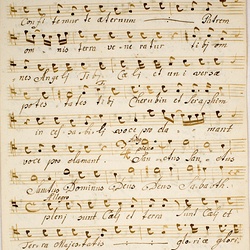 Confitemur te aeternum Patrem
omnis terra veneratur tibi om
nes Angeli Tibi Caeli et universae
potestates tibi Cherubin et Seraphim
in cessabili voce proclamant
voce proclamant Sanctus Sanctus
Sanctus Dominus Deus Deus Sabaoth
pleni sunt Caeli et terra Sunt Caeli et
Terra Majestatis gloriae gloriae